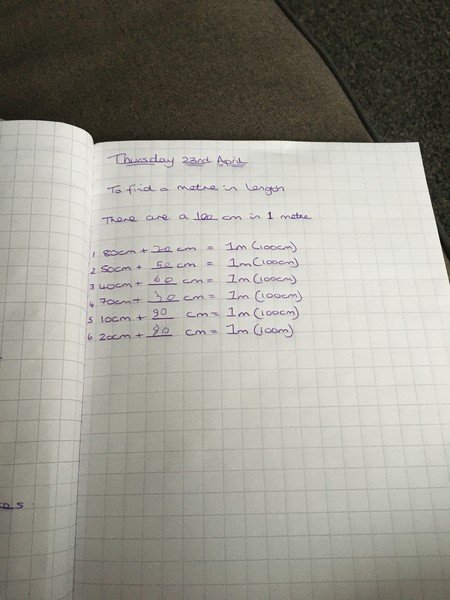 Thursday 23rd April.
To find a metre in length
There are a 100 cm in 1 metre
1 80cm + 20 cm = 1m (100cm)
2 50cm + 50 cm = 1m (100cm)
3 40cm + 60 cm = 1m (100cm)
4 70cm + 30 cm = 1m (100cm)
5 10cm + 90 cm = 1m (100cm)
6 20cm + 80 cm = 1m (100m)